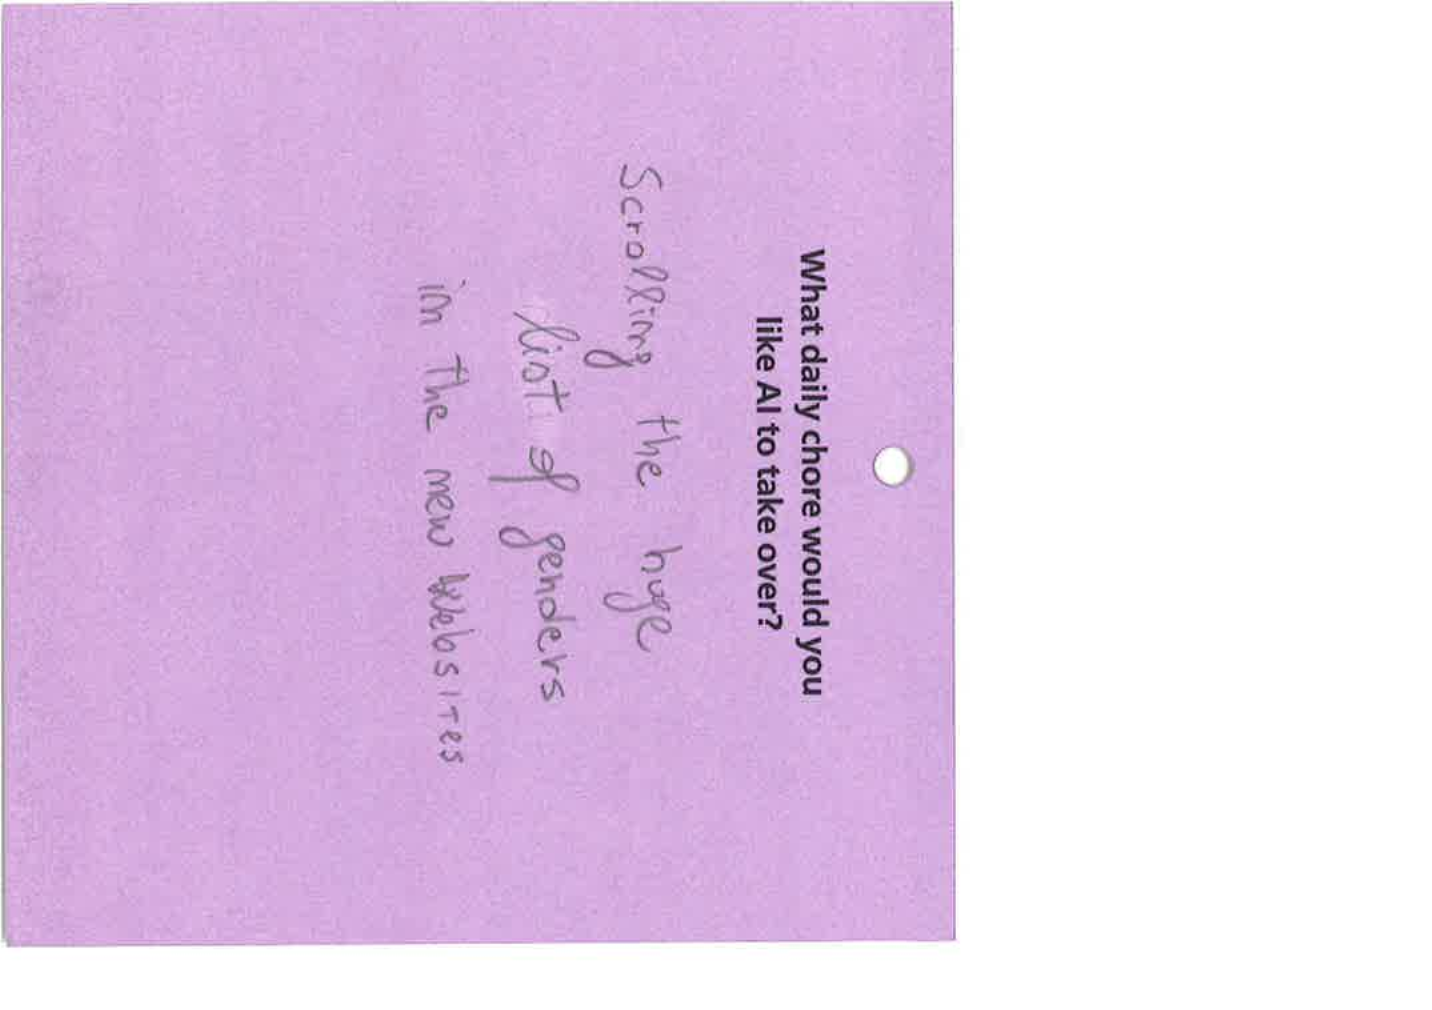 What daily chore would you
like AI to take over?
Scrolling the huge
list of genders
in the new Websites